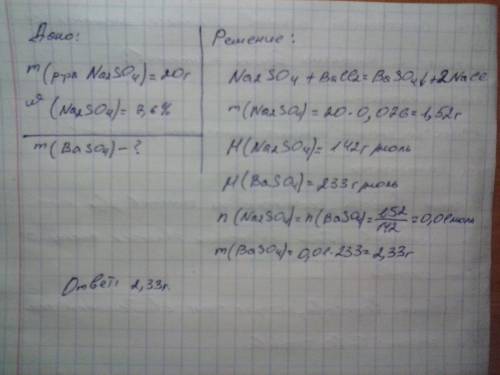 Дано:
m(р-ра Na2SO4)=20г
w(Na2SO4)=7,6%
m(BaSO4)-?
Решение:
Na2SO4 + BaCl2=BaSO4↓+2NaCl
m(Na2SO4)=20·0,076=1,52г
M(Na2SO4)=142г моль
M(BaSO4)=233г моль
n(Na2SO4)=n(BaSO4)=1,52/142=0,01моль
m(BaSO4)=0,01·233=2,33г
Ответ: 2,33г.